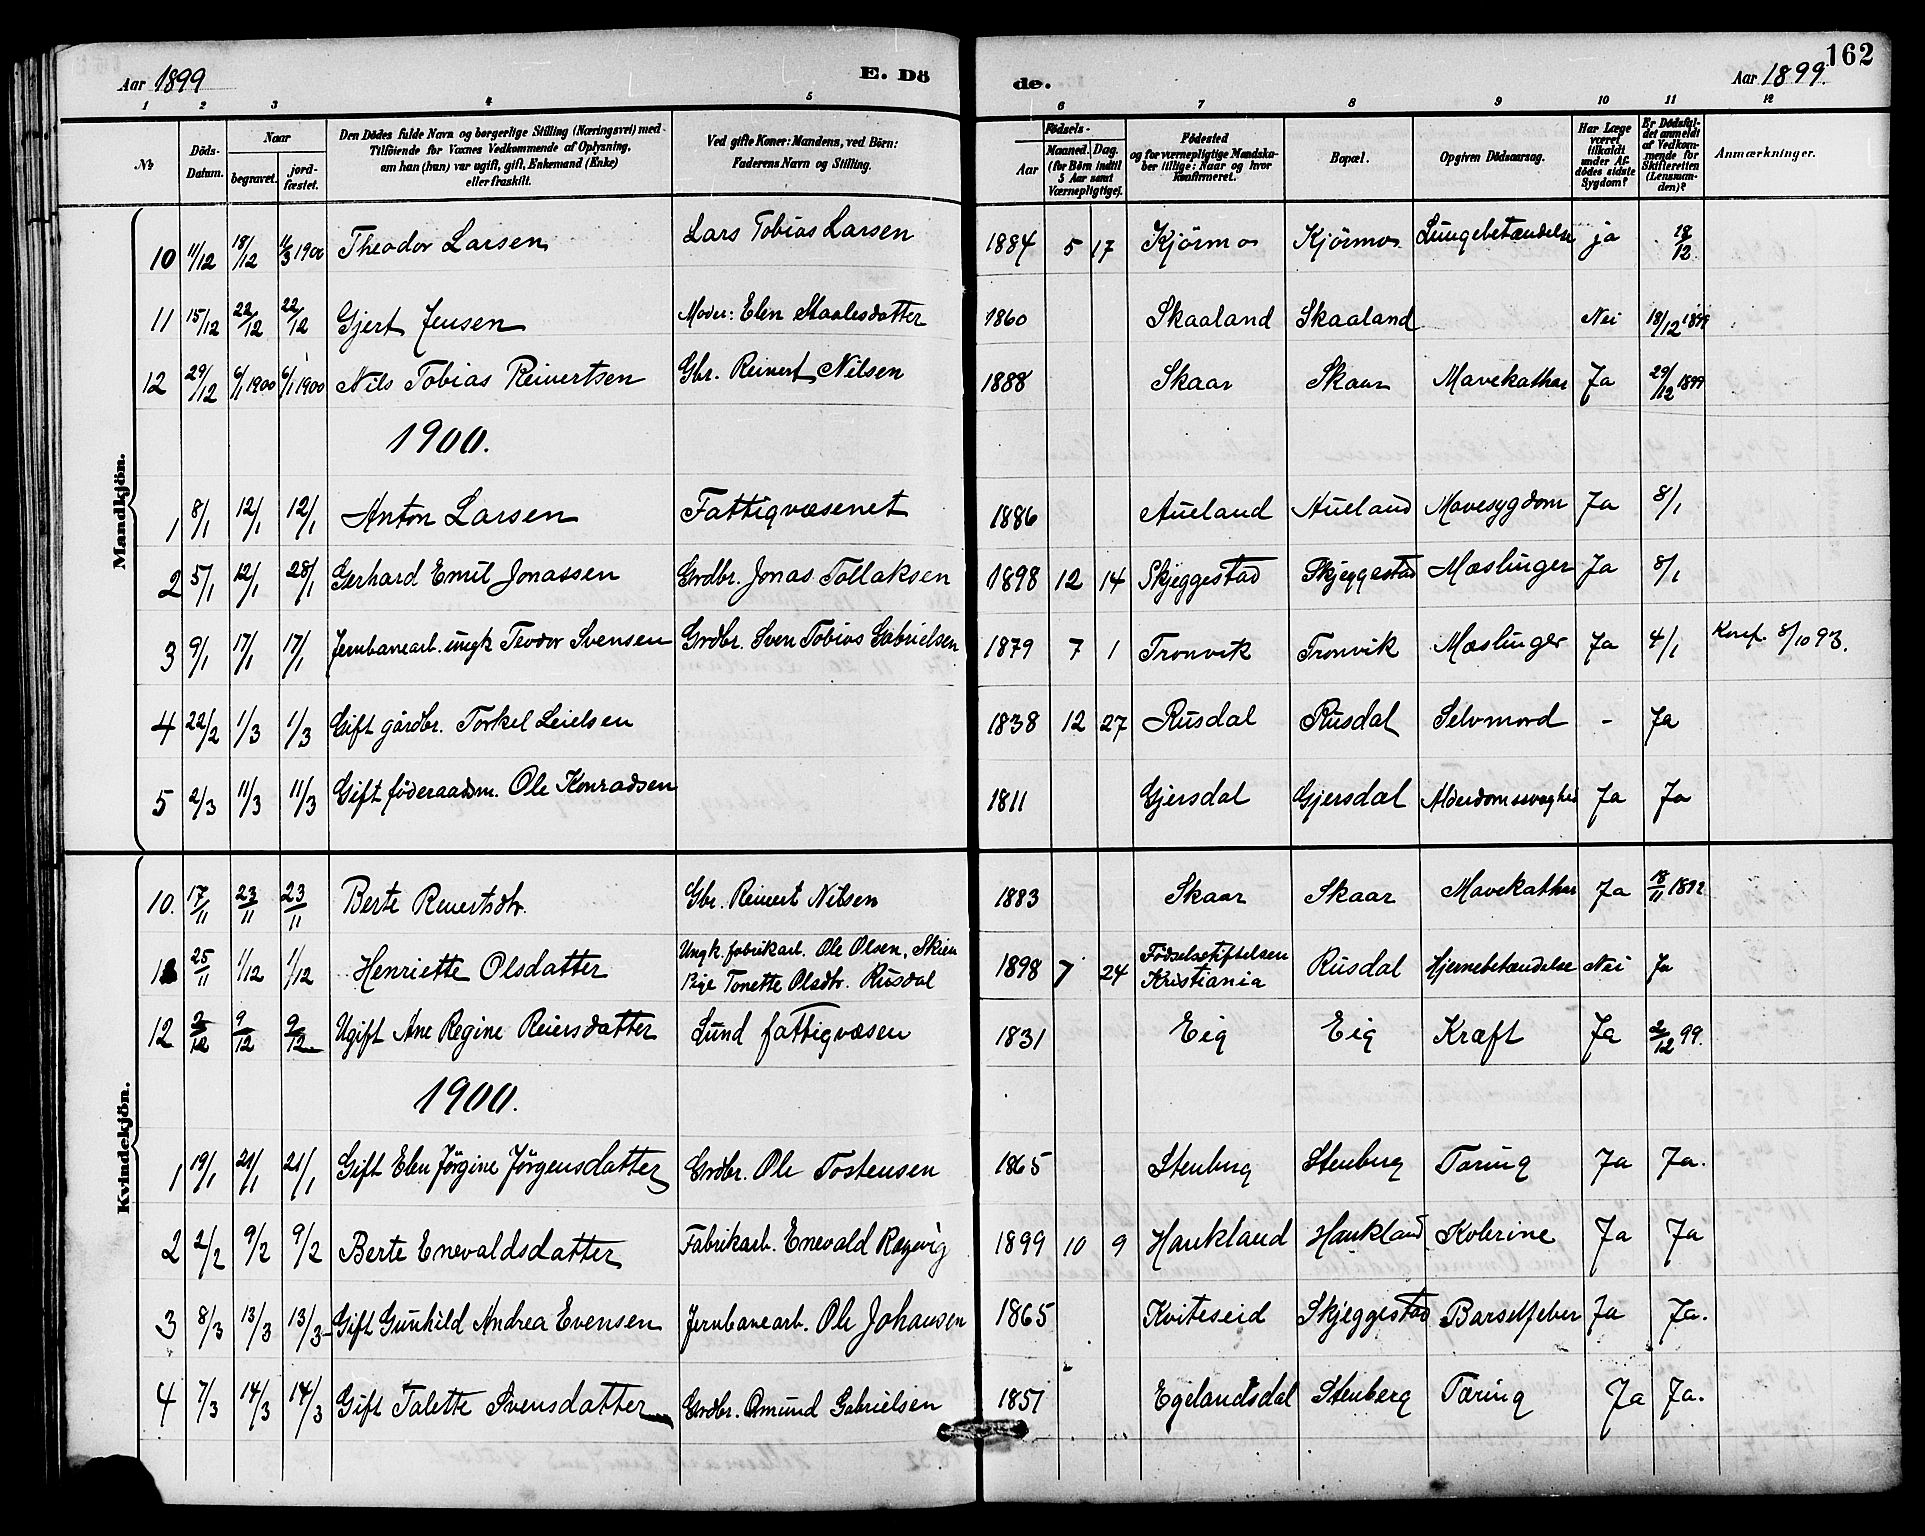 Aar 1899
E. Dö
de.
162
Aar 1899.
1 2 3 4 5 6 7 8 9 10 11 12
No
Döds-
Datum.
Naar
begravet.
jord-
fæstet.
Den Dödes fulde Navn og borgerlige Stilling (Næringsvei) med
Tilföiende for Voxnes Vedkommende af Oplysning,
om han (hun) var ugift, gift, Enkemand (Enke)
eller fraskilt.
Ved gifte Koner: Mandens, ved Börn:
Faderens Navn og Stilling.
Födsels-
Aar
Maaned. Dag.
(for Börn indtil
5 Aar samt
Værnepligtige).
Födested
og for værnepligtige Mandska-
ber tillige: Naar og hvor
konfirmeret.
Bopæl.
Opgiven Dödsaarsag.
Har Læge
været
tilkaldt
under Af-
dödes sidste
Sygdom?
Er Dödsfal-
det anmeldt
af Vedkom-
mende for
Skifteretten
(Lensman-
den)?
Anmærkninger.
Mandkjön.
10 11/12 18/12 11/3 1900 Theodor Larsen Lars Tobias Larsen 1884 5 17 Kjörmo Kjörmo Lungebetændelse ja 18/12
11 15/12 22/12 22/12 Gjert Jensen Moder: Elen Staalesdatter 1860 Skaaland Skaaland Nei 18/12 1899
12 29/12 6/1 1900 6/1 1900 Nils Tobias Reinertsen Gbr. Reinert Nilsen 1888 Skaar Skaar Mavekathar Ja 29/12 1899
1900.
1 8/1 12/1 12/1 Anton Larsen Fattigvæsenet 1886 Aueland Aueland Mavesygdom Ja 8/1
2 5/1 12/1 28/1 Gerhard Emil Jonassen Grdbr. Jonas Tollaksen 1898 12 14 Skjeggestad Skjeggestad Mæslinger Ja 8/1
3 9/1 17/1 17/1 Jernbanearb. ungk Teodor Svensen Grdbr. Sven Tobias Gabrielsen 1879 7 1 Tronvik Tronvik Mæslinger Ja 4/1 Konf. 8/10 93.
4 22/2 1/3 1/3 Gift gårdbr. Torkel Leielsen 1838 12 27 Rusdal Rusdal Selvmord - Ja
5 2/3 11/3 11/3 Gift föderaadsm. Ole Konradsen 1811 Gjersdal Gjersdal Alderdomssvaghed Ja Ja
Kvindekjön.
10. 17/11 23/11 23/11 Berte Reinertsdtr. Gbr. Reinert Nilsen 1883 Skaar Skaar Mavekathar Ja 18/11 1899
11 25/11 1/12 1/12 Henriette Olsdatter Ungk. fabrikarb. Ole Olsen, Skien
Pige Tonette Olsdtr. Rusdal 1898 7 24 Födselsstiftelsen
Kristiania Rusdal Hjernebetændelse Nei Ja
12 2/12 9/12 9/12 Ugift Ane Regine Reiersdatter Lund fattigvæsen 1831 Eig Eig Kræft Ja 2/12 99.
1900.
1 19/1 21/1 21/1 Gift Elen Jörgine Jörgensdatter Grdbr. Ole Tostensen 1865 Stenberg Stenberg Tæring Ja Ja.
2 2/2 9/2 9/2 Berte Enevaldsdatter Fabrikarb. Enevald Regevig 1899 10 9 Haukland Haukland Kolerine Ja Ja
3 8/3 13/3 13/3 Gift Gunhild Andrea Evensen Jernbanearb. Ole Johansen 1865 Kviteseid Skjeggestad Barselfeber Ja Ja.
4 7/3 14/3 14/3 Gift Talette Svensdatter Grdbr. Omund Gabrielsen 1851 Egelandsdal Stenberg Tæring Ja Ja.